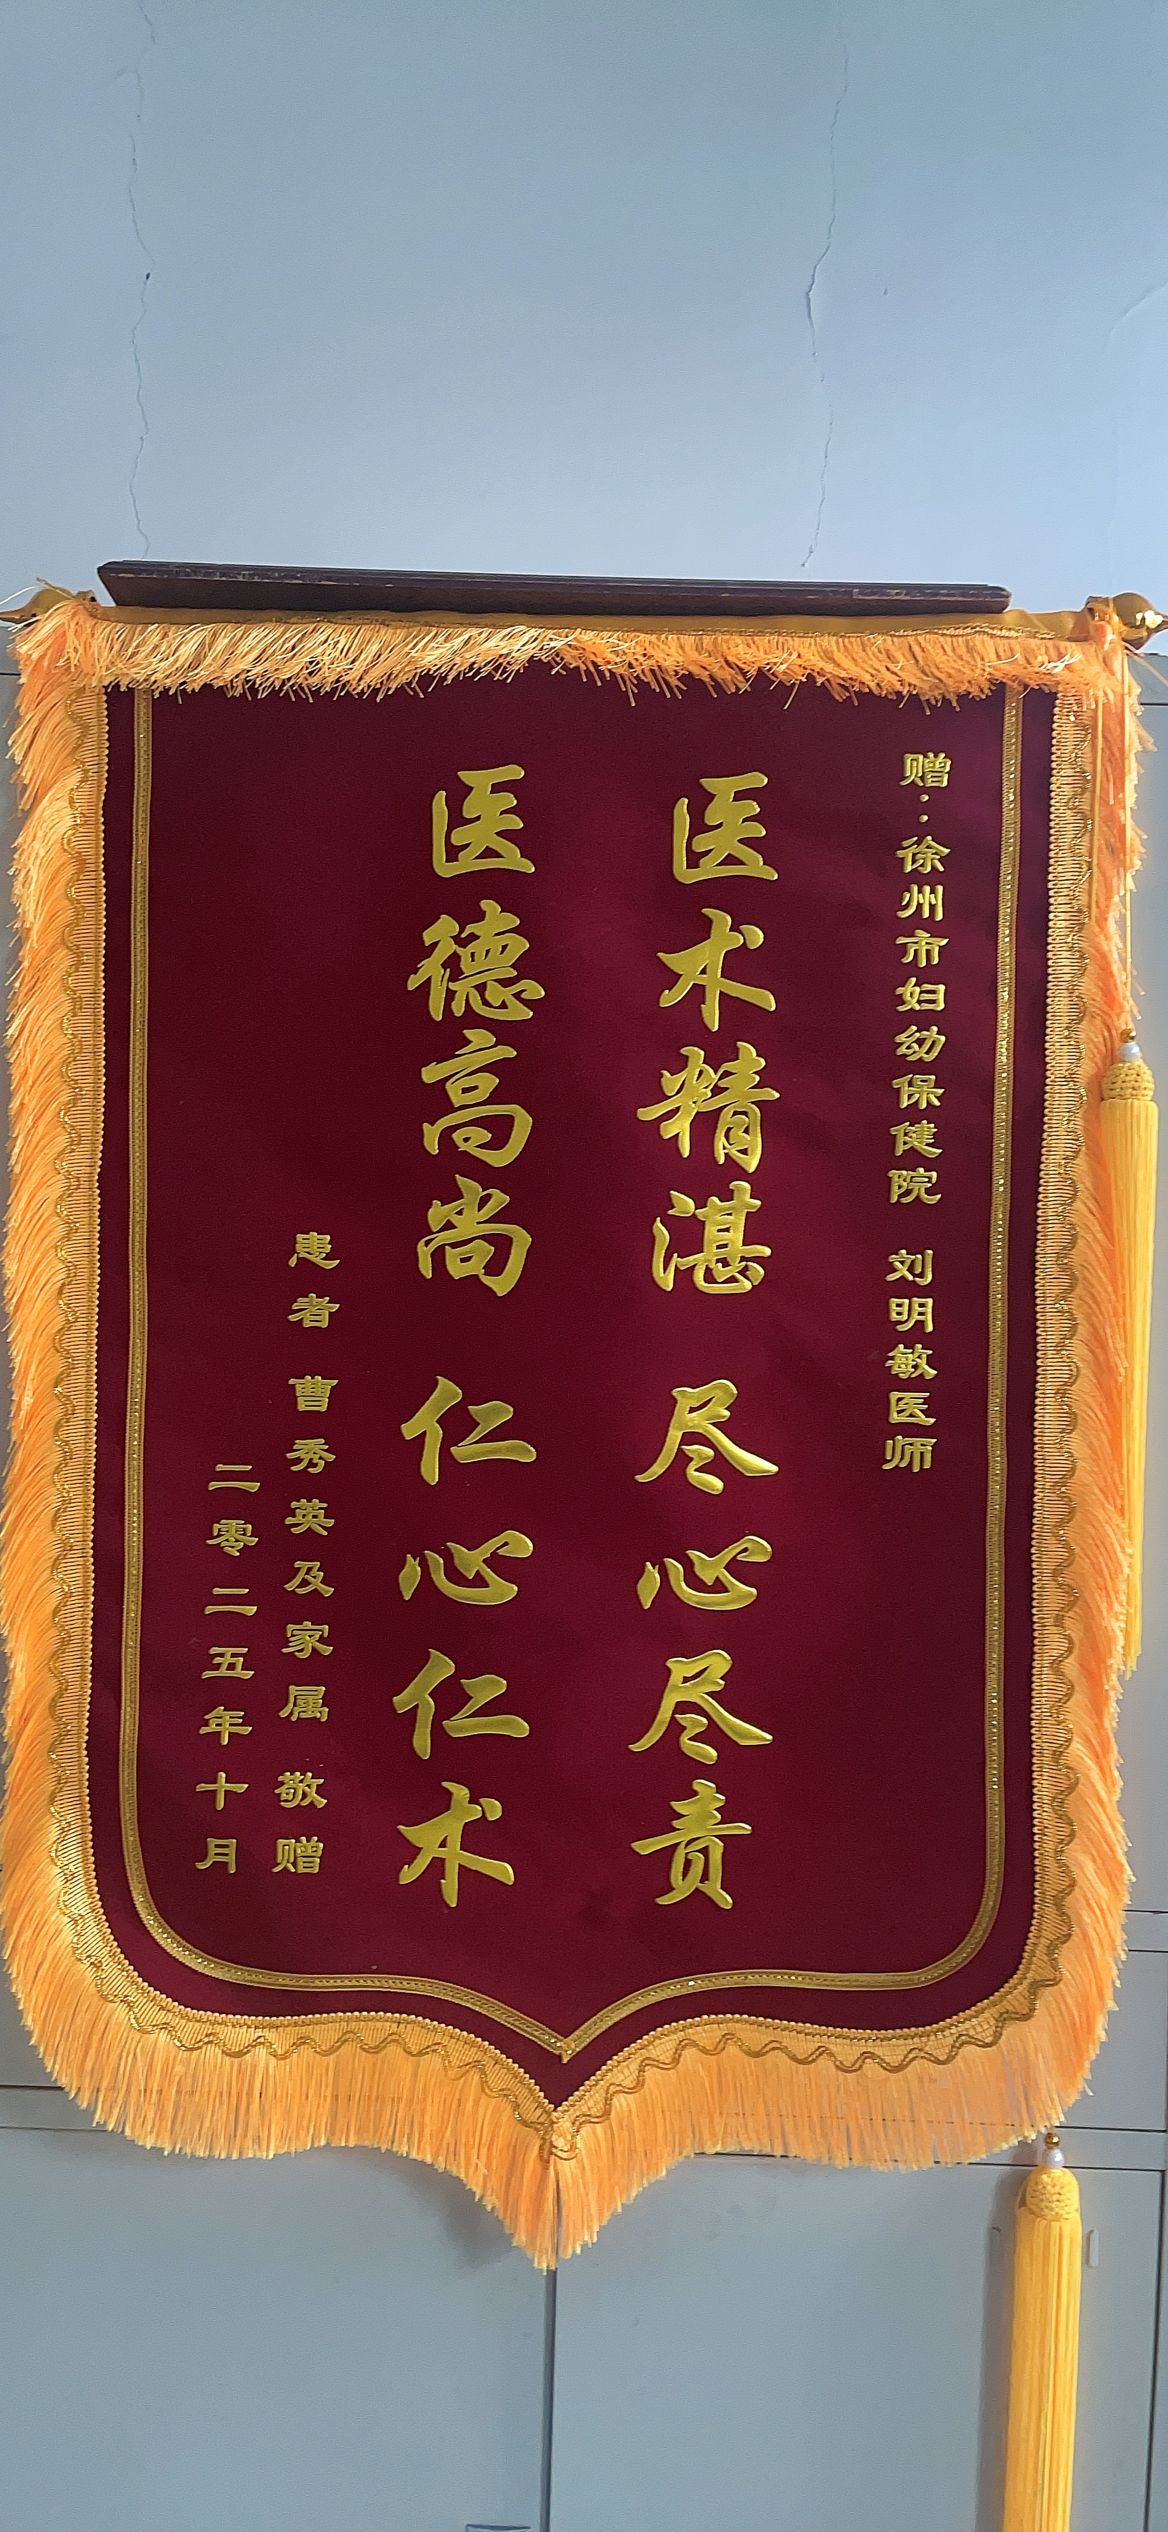 赠：徐州市妇幼保健院 刘明敏医师
医术精湛 尽心尽责
医德高尚 仁心仁术
患者 曹秀英及家属 敬赠
二零二五年十月